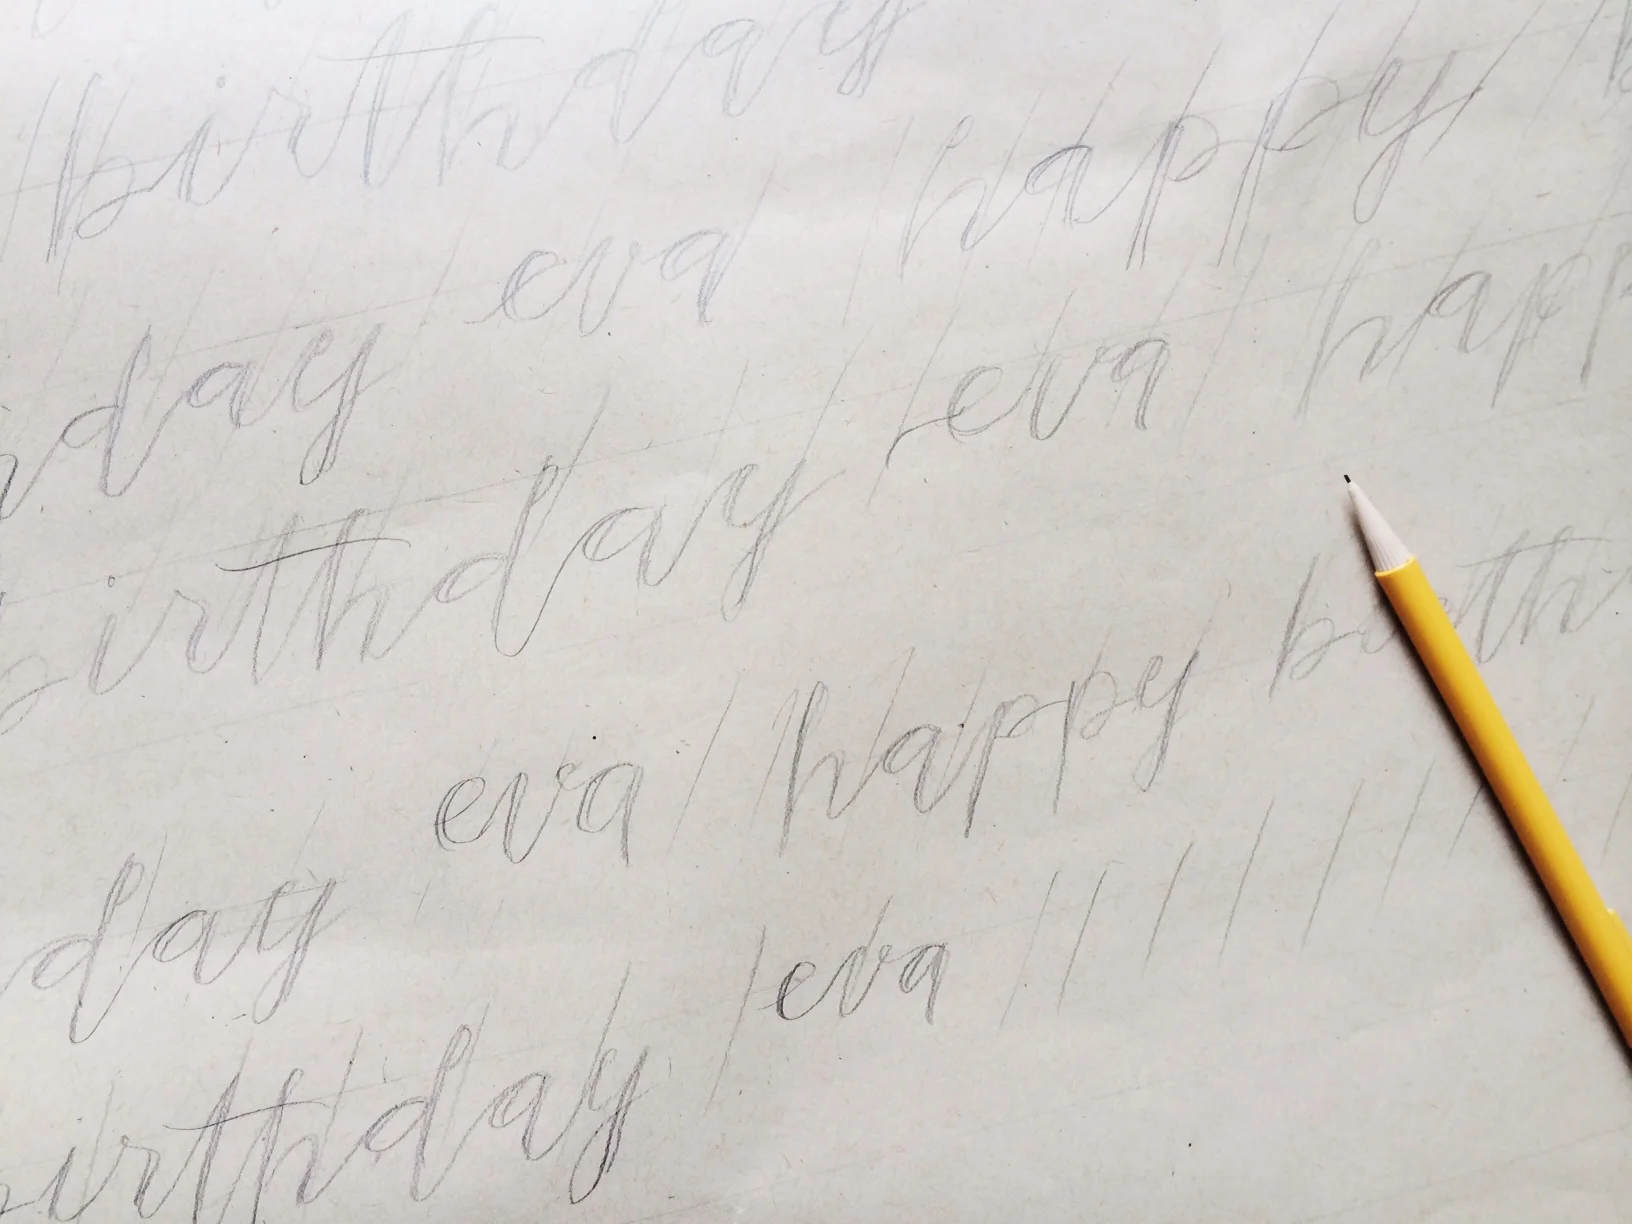 birthday
hday eva happy b
birthday eva happ
day eva happy birth
birthday eva